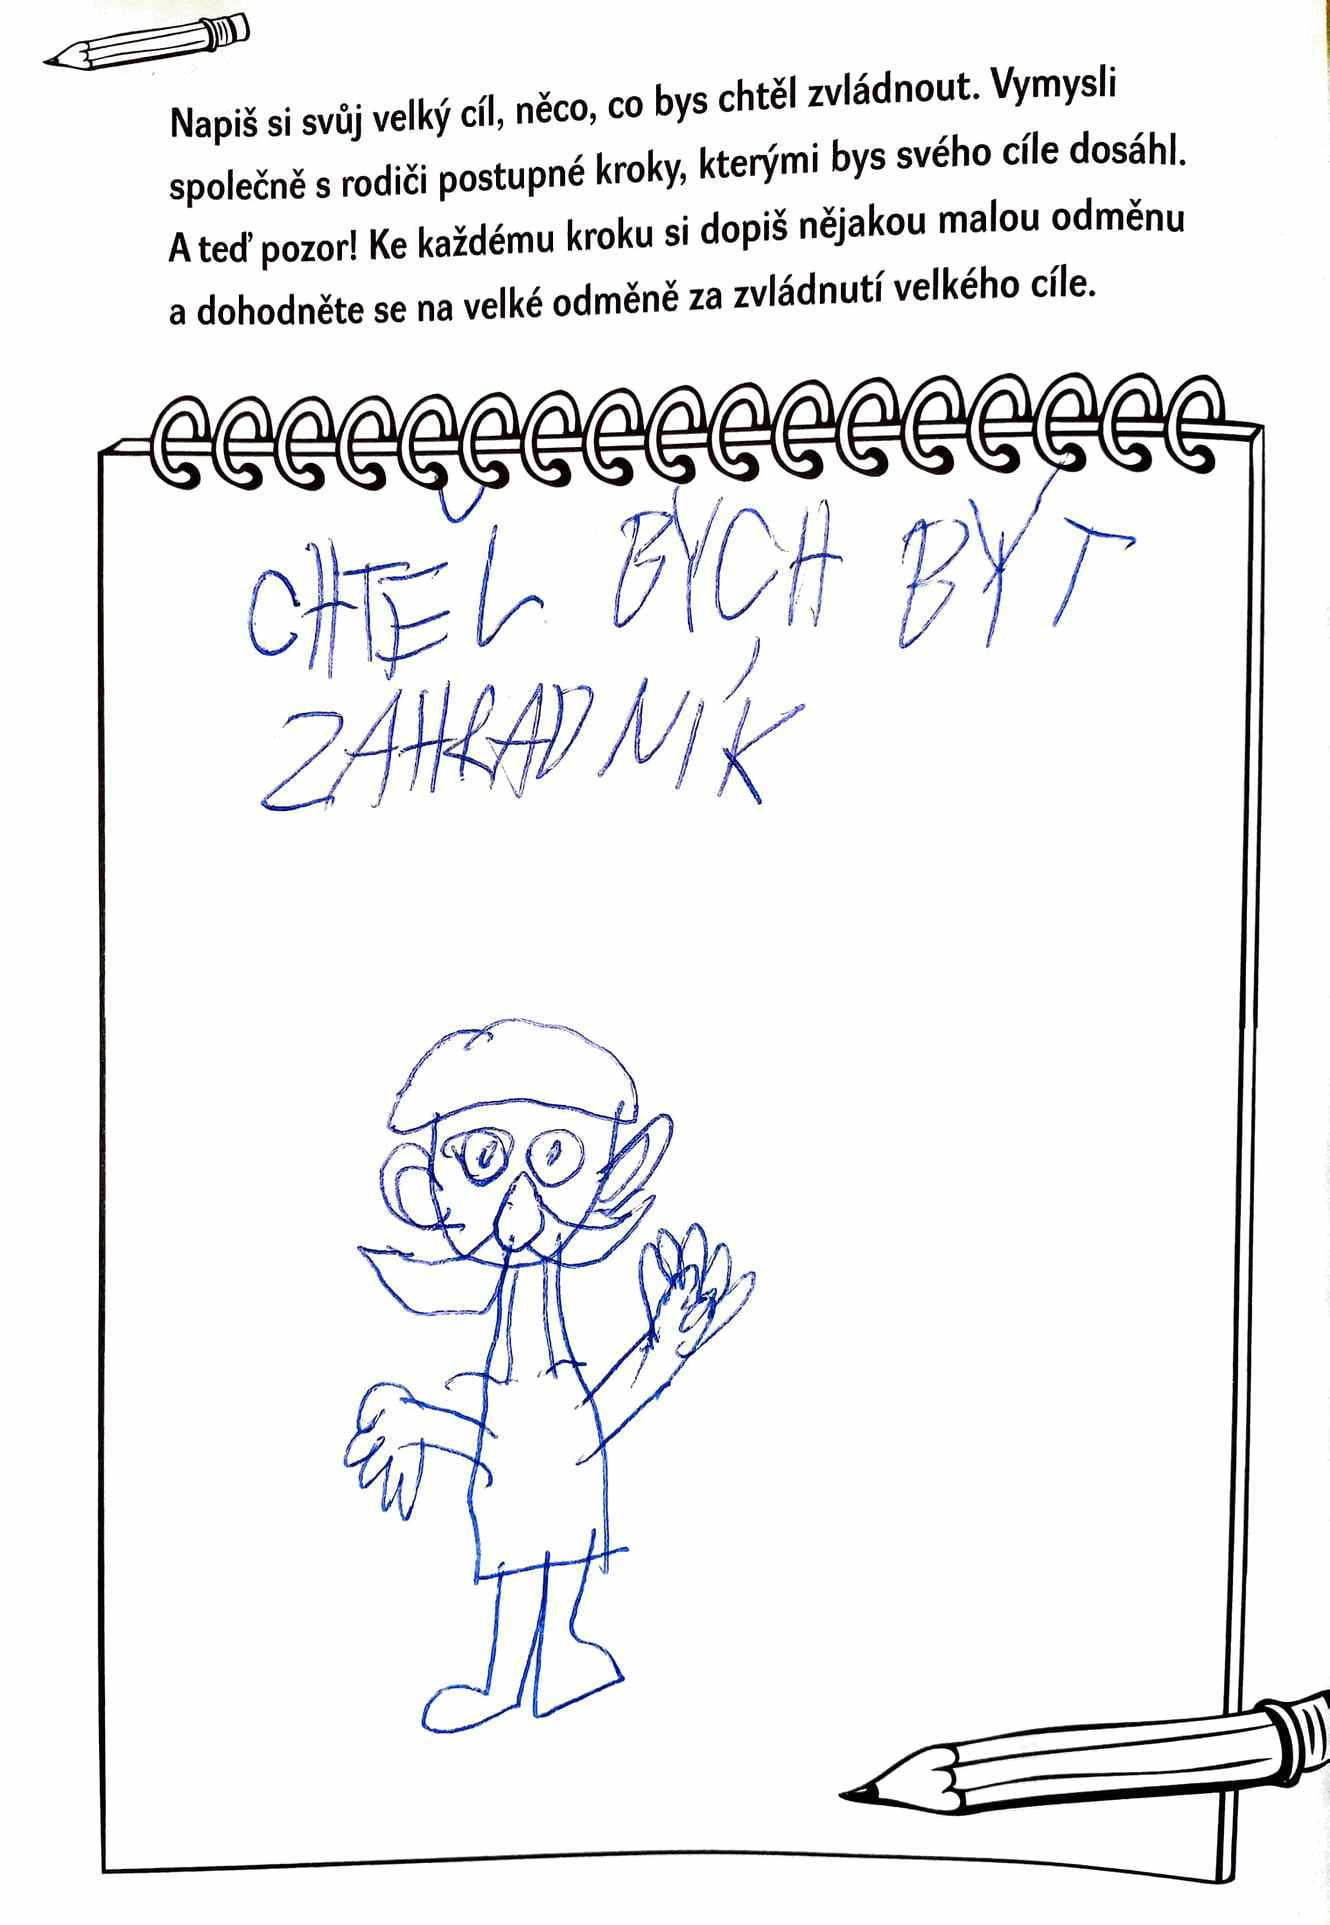 Napiš si svůj velký cíl, něco, co bys chtěl zvládnout. Vymysli
společně s rodiči postupné kroky, kterými bys svého cíle dosáhl.
A teď pozor! Ke každému kroku si dopiš nějakou malou odměnu
a dohodněte se na velké odměně za zvládnutí velkého cíle.
CHTĚL BYCH BÝT
ZAHRADNÍK